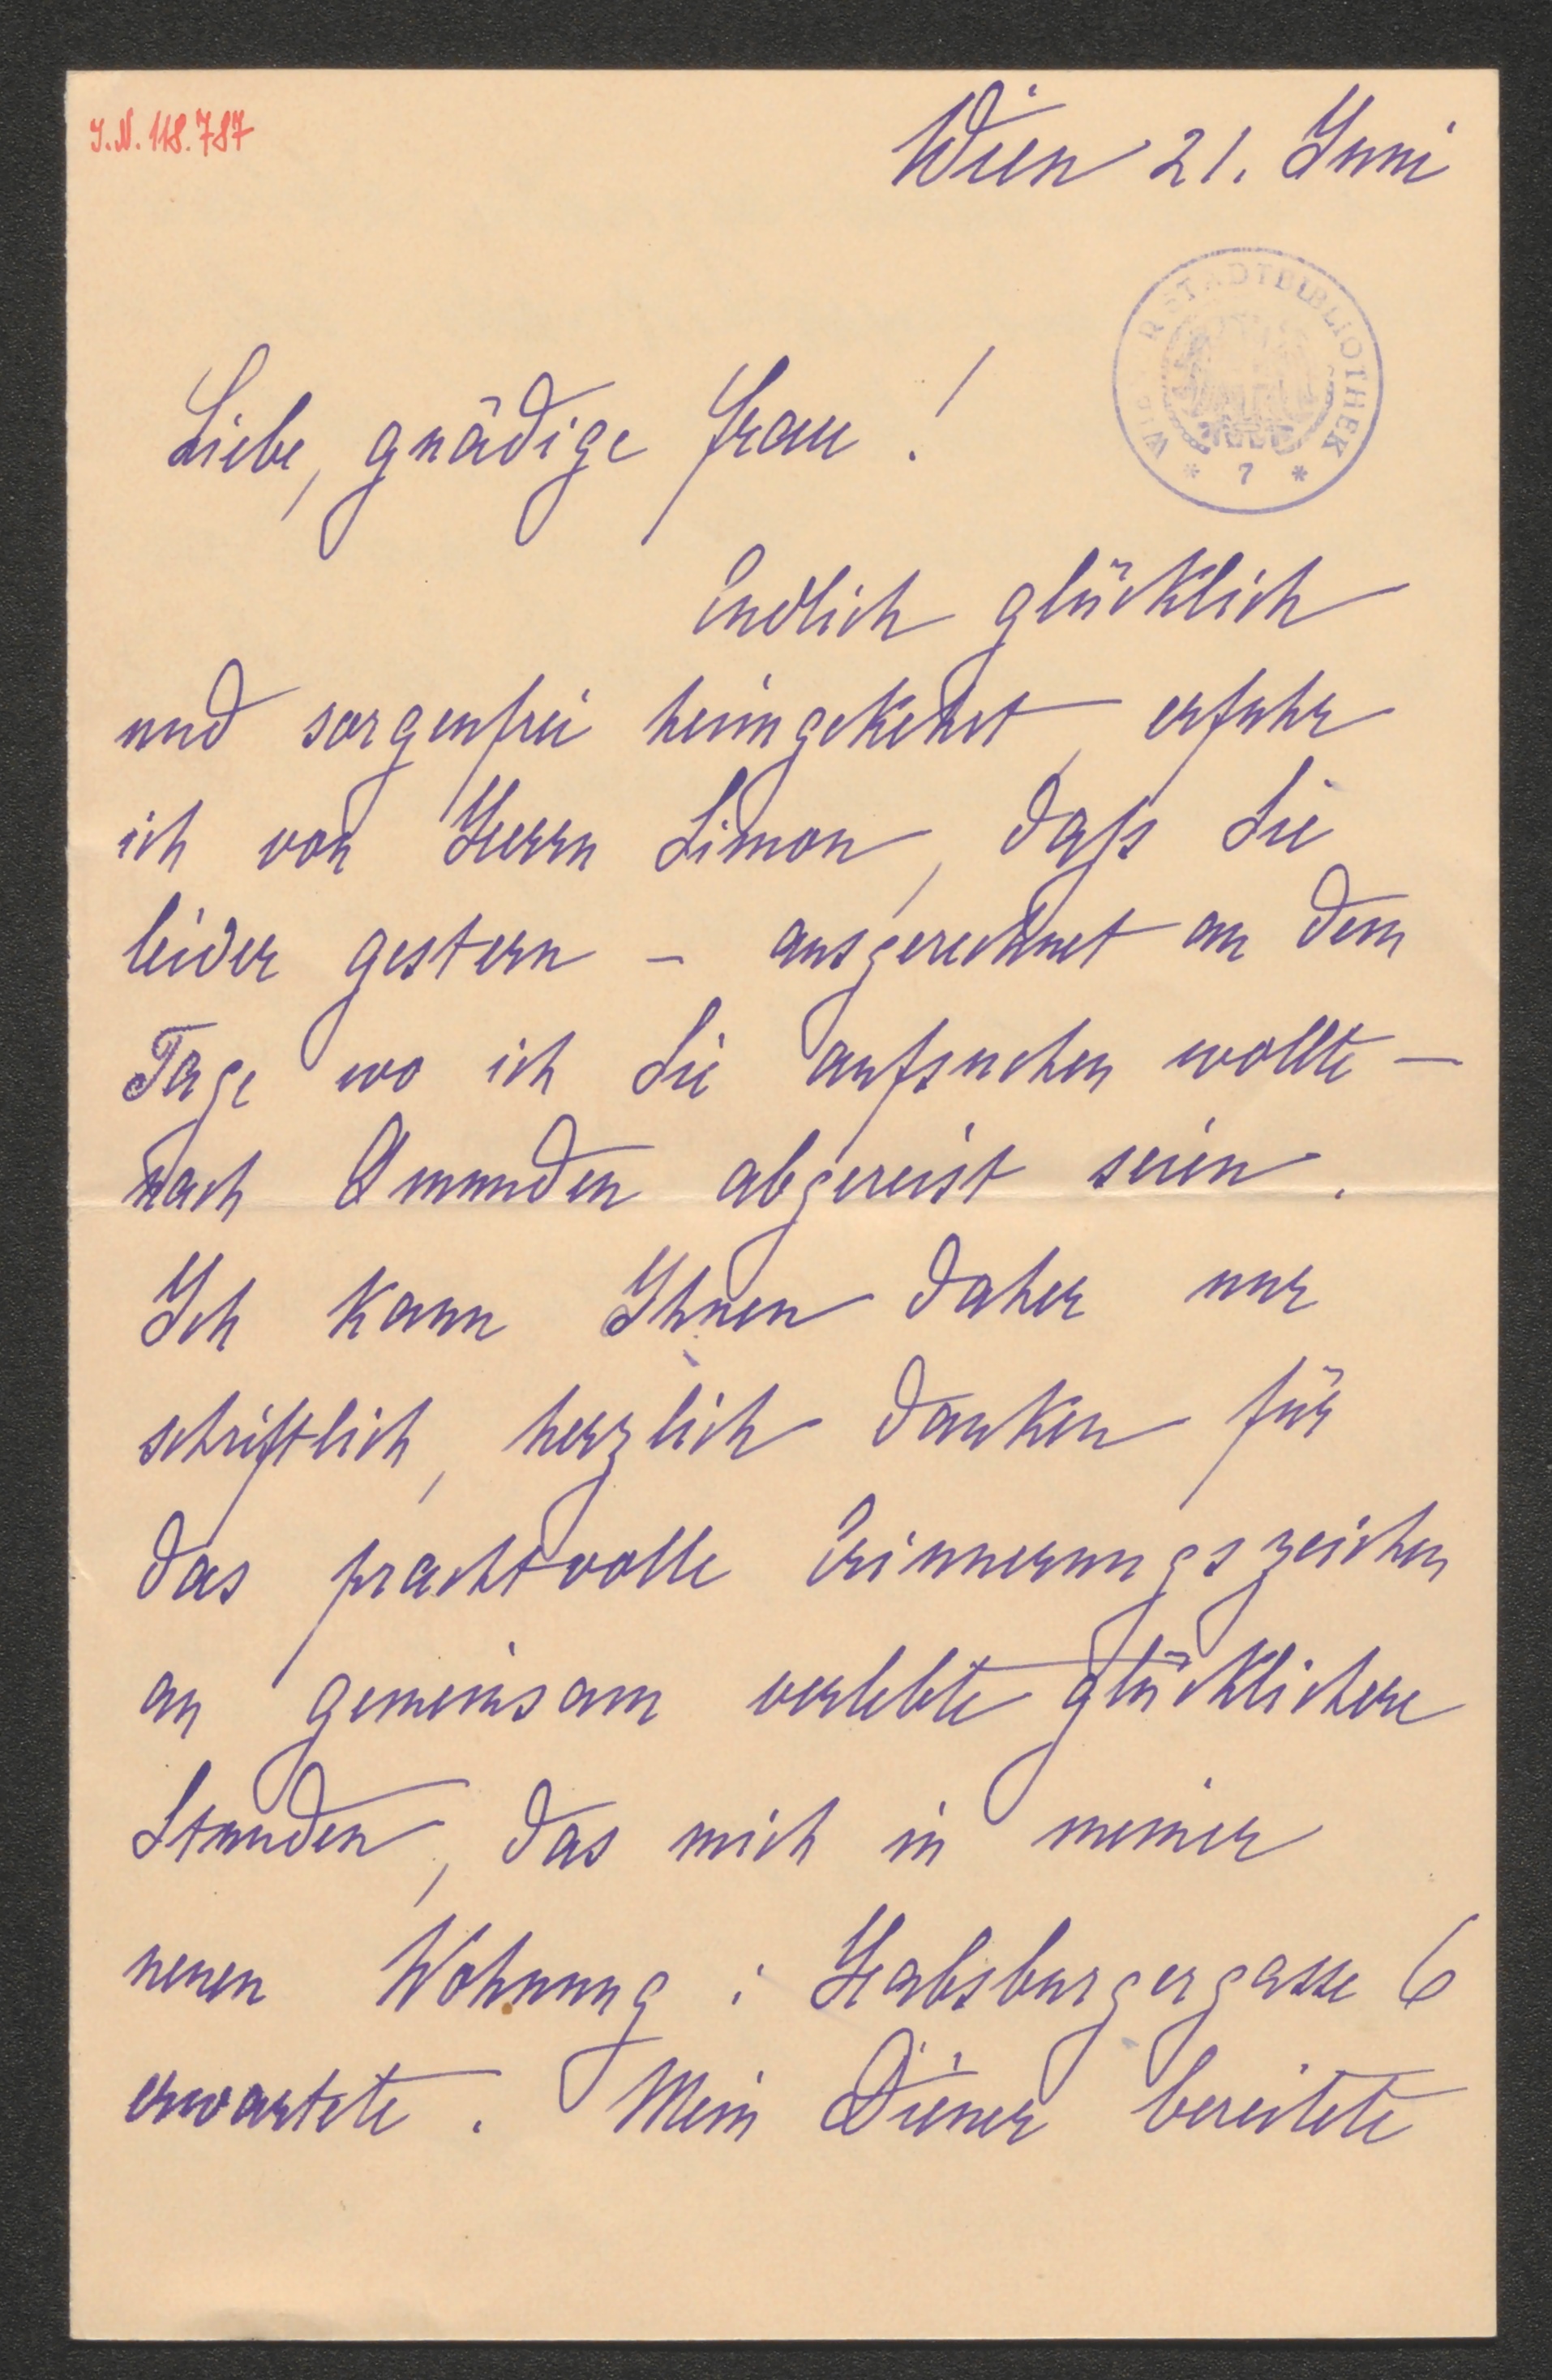 I.N. 118.787
Wien 21. Juni
WIENER STADTBIBLIOTHEK
* 7 *
Liebe, gnädige Frau!
Endlich glücklich
und sorgenfrei heimgekehrt, erfuhr
ich von Herrn Simon, daß Sie
leider gestern – ausgerechnet an dem
Tage wo ich Sie aufsuchen wollte –
nach Gmunden abgereist seien.
Ich kann Ihnen daher nur
schriftlich, herzlich danken für
das prachtvolle Erinnerungszeichen
an gemeinsam verlebte glücklichere
Stunden, das mich in meiner
neuen Wohnung: Habsburgergasse 6
erwartete. Mein Diener bereitete